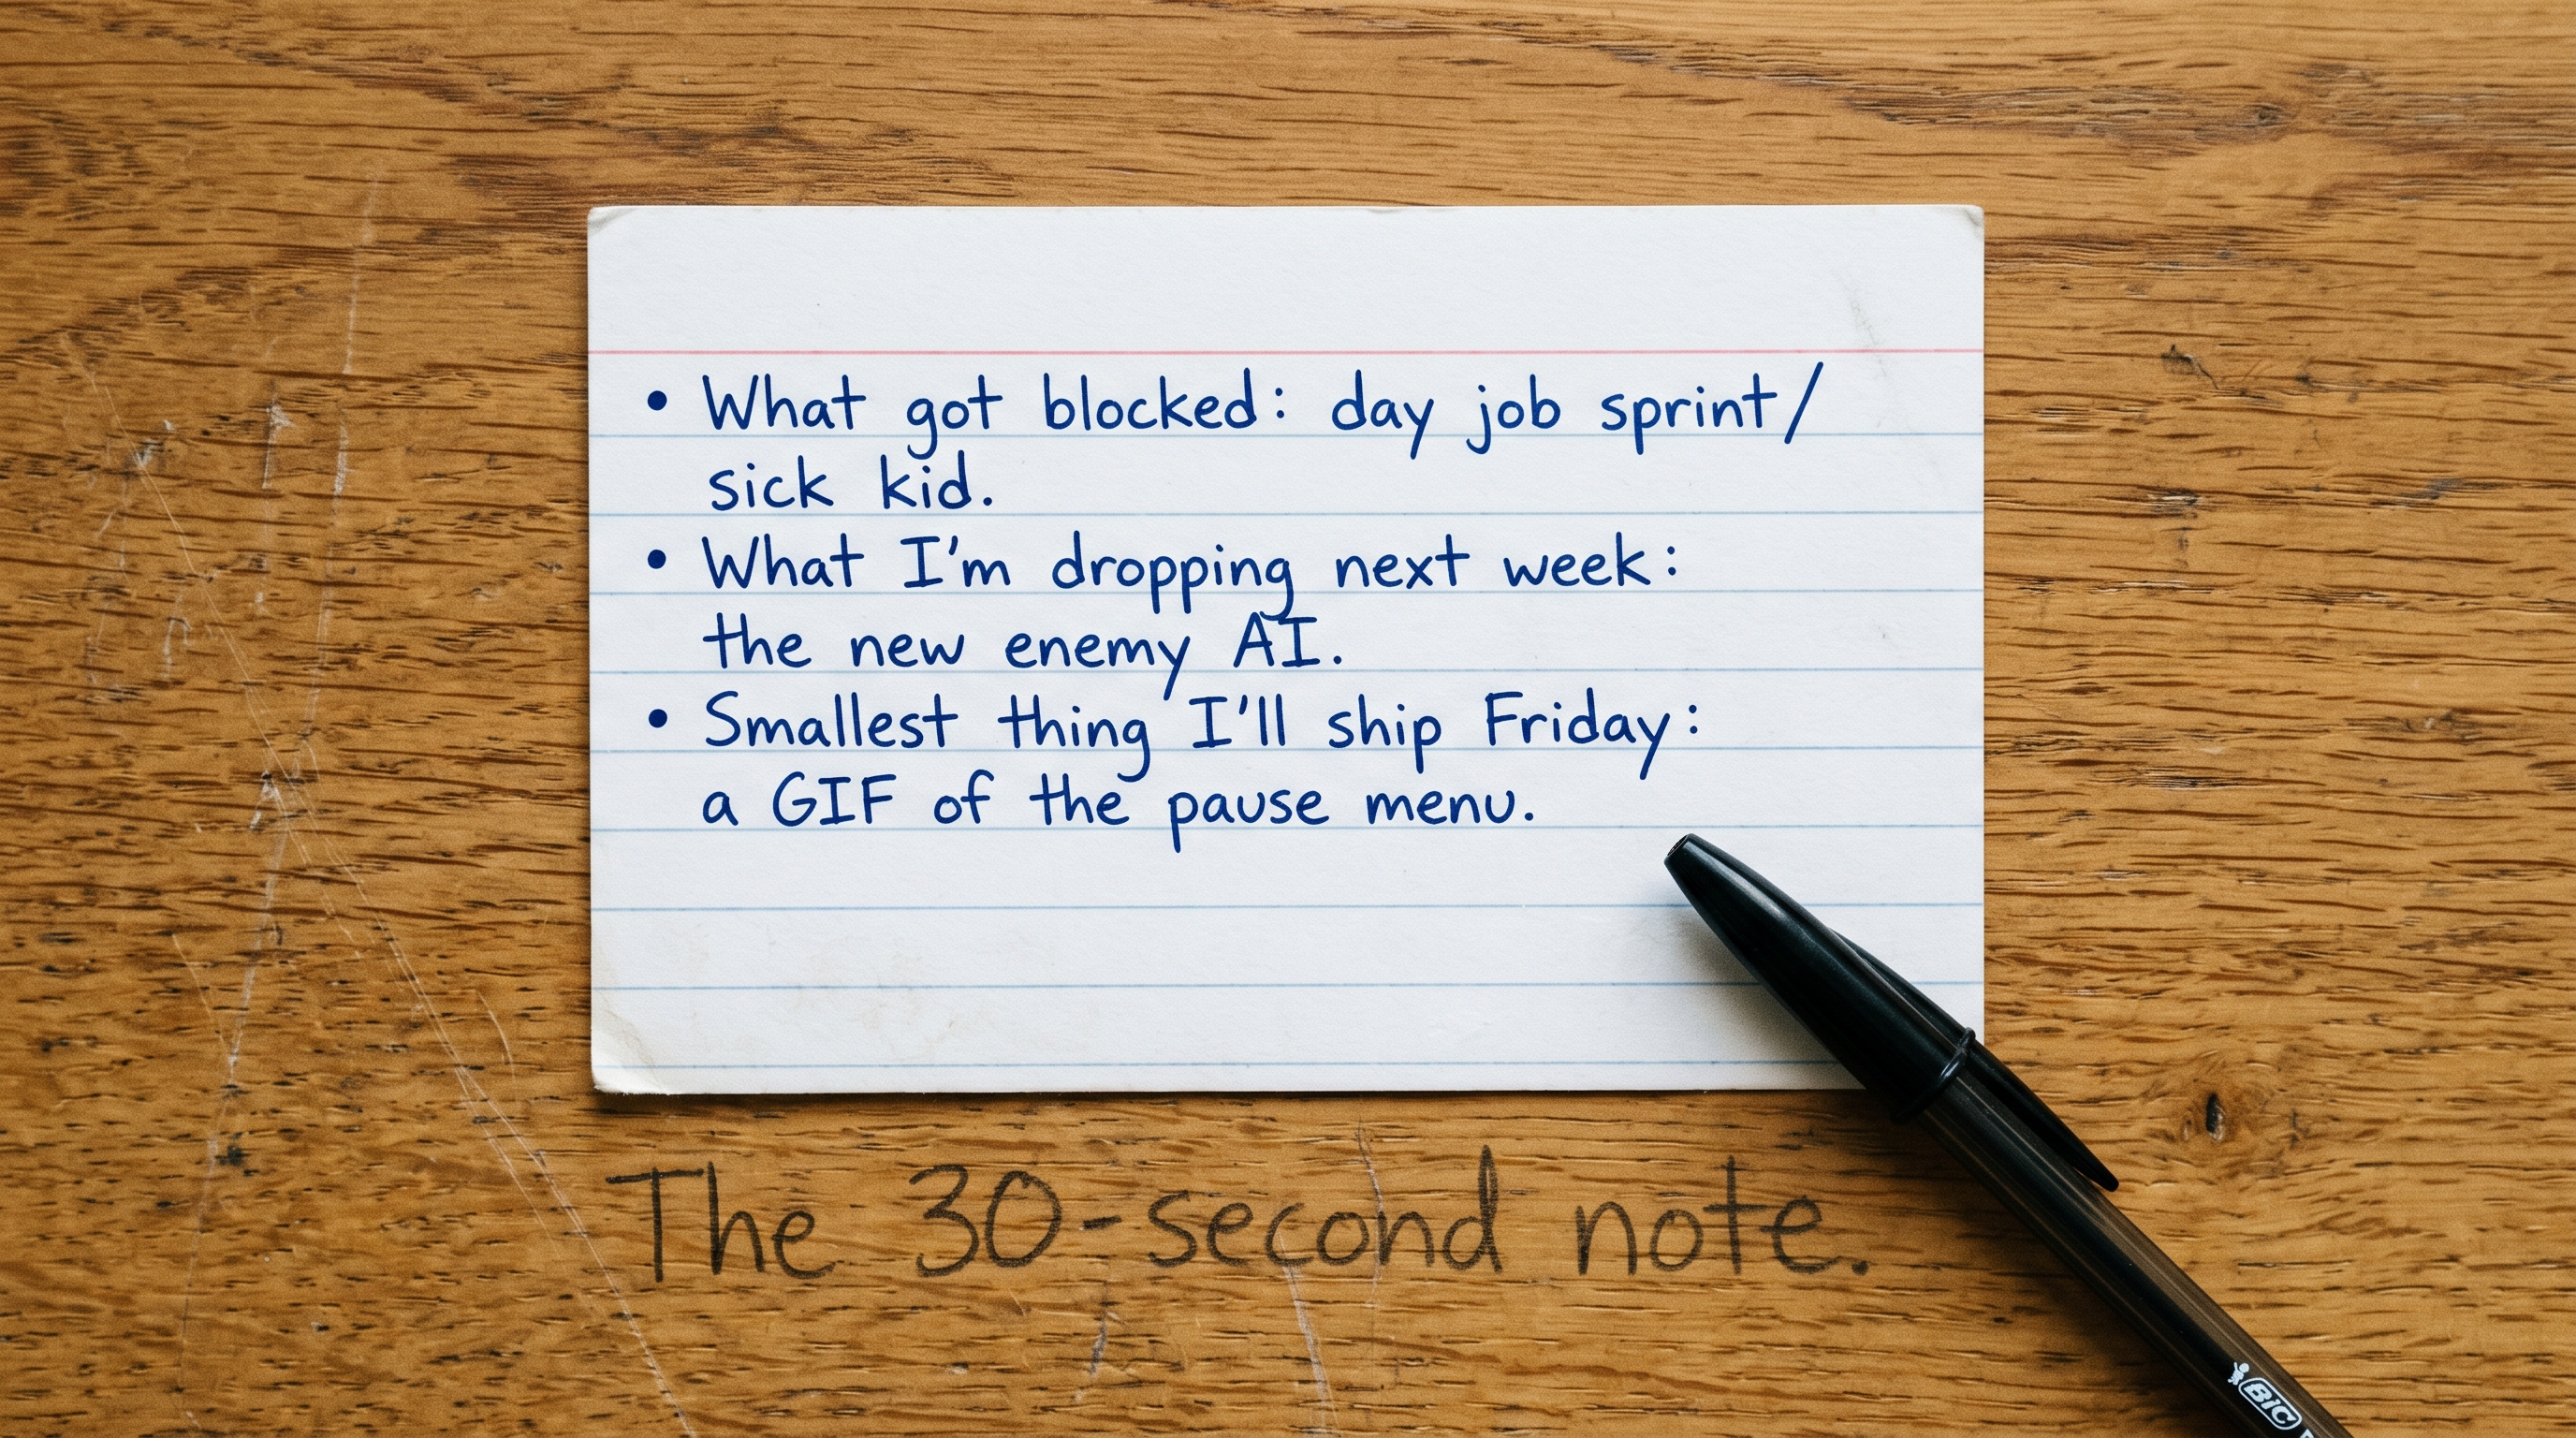 • What got blocked: day job sprint/
sick kid.
• What I'm dropping next week:
the new enemy AI.
• Smallest thing I'll ship Friday:
a GIF of the pause menu.
The 30-second note.
BIC